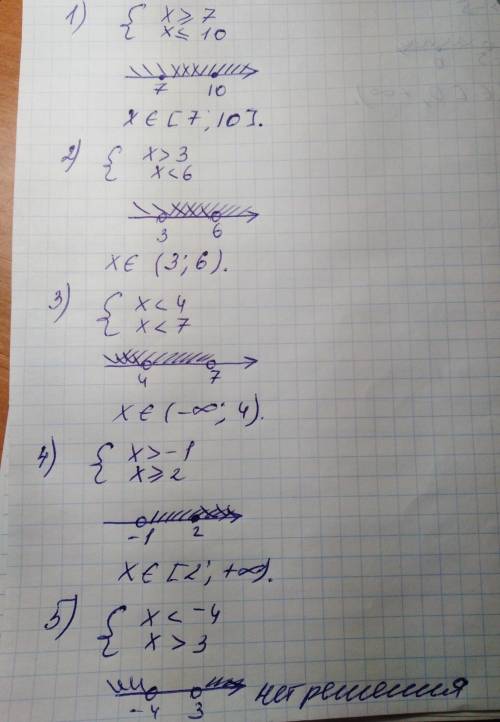 1) { x ≥ 7
x ≤ 10
7 10
x ∈ [7; 10].
2) { x > 3
x < 6
3 6
x ∈ (3; 6).
3) { x < 4
x < 7
4 7
x ∈ (-∞; 4).
4) { x > -1
x ≥ 2
-1 2
x ∈ [2; +∞).
5) { x < -4
x > 3
-4 3 нет решения